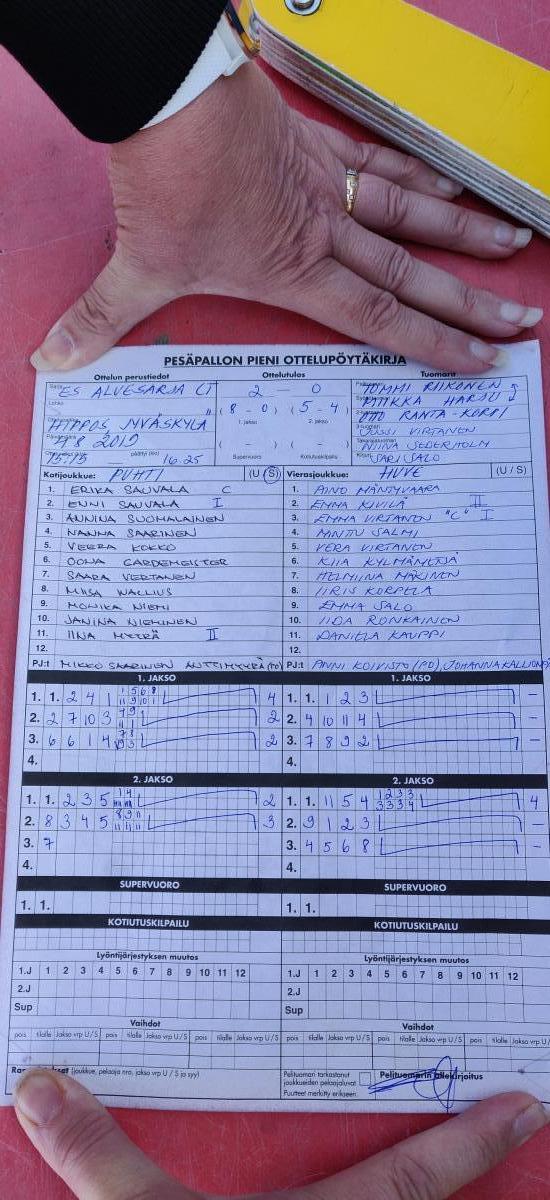 PESÄPALLON PIENI OTTELUPÖYTÄKIRJA
Ottelun perustiedot Ottelutulos Tuomarit
ES ALUESARJA LT 2 — 0 TOMMI RIIKONEN
(8 - 0) (5 - 4) HARJU
HIPPOS JYVÄSKYLÄ 1. jakso 2. jakso OTO RANTA-KORPI
4 8 2019 ( - ) ( - ) JUSSI VIRTANEN
NIINA SEDERHOLM
15:15 päättyi (klo) 16.25 Supervuoro Kotiutuskilpailu SARI SALO
Kotijoukkue: PUHTI (U / S) Vierasjoukkue: HUVE (U / S)
1. ERIKA SAUVALA C 1. AINO MÄNTYVAARA
2. ENNI SAUVALA I 2. EMMA KIVILÄ II
3. ANNINA SUOMALAINEN 3. EMMA VIRTANEN "C" I
4. NANNA SAARINEN 4. MINTU SALMI
5. VEERA KOKKO 5. VERA VIRTANEN
6. OONA GARDEMEISTER 6. KIIA KYLMÄNETSÄ
7. SAARA VERTANEN 7. HELMIINA MÄKINEN
8. MIISA WALLIUS 8. IIRIS KORPELA
9. MONIKA NIEMI 9. EMMA SALO
10. JANINA NIEMINEN 10. IIDA RONKAINEN
11. IINA MYYRÄ II 11. DANIELA KAUPPI
12. 12.
PJ:t MIKKO SAARINEN ANTTI MYYRÄ (PD) PJ:t ANNI KOIVISTO (PD), JOHANNA KALLION
1. JAKSO 1. JAKSO
1. 1. 2 4 1 4 1. 1. 1 2 3 –
2. 2 7 10 3 2 2. 4 10 11 4 –
3. 6 6 1 4 2 3. 7 8 9 2 –
4. 4.
2. JAKSO 2. JAKSO
1. 1. 2 3 5 2 1. 1. 11 5 4 1 2 3 3 3 3 3 4 4
2. 8 3 4 5 3 2. 9 1 2 3 –
3. 7 3. 4 5 6 8 –
4. 4.
SUPERVUORO SUPERVUORO
1. 1. 1. 1.
KOTIUTUSKILPAILU KOTIUTUSKILPAILU
Lyöntijärjestyksen muutos Lyöntijärjestyksen muutos
1.J 1 2 3 4 5 6 7 8 9 10 11 12 1.J 1 2 3 4 5 6 7 8 9 10 11 12
2.J 2.J
Sup Sup
Vaihdot Vaihdot
pois tilalle Jakso vrp U / S pois tilalle Jakso vrp U / S pois tilalle Jakso vrp U / S pois tilalle Jakso vrp U / S pois tilalle Jakso vrp U / S pois tilalle Jakso vrp U / S
(joukkue, pelaaja nro, jakso vrp U / S ja syy) Pelituomari tarkastanut joukkueiden pelaajaluvat Pelituomarin allekirjoitus
Puutteet merkitty erikseen.